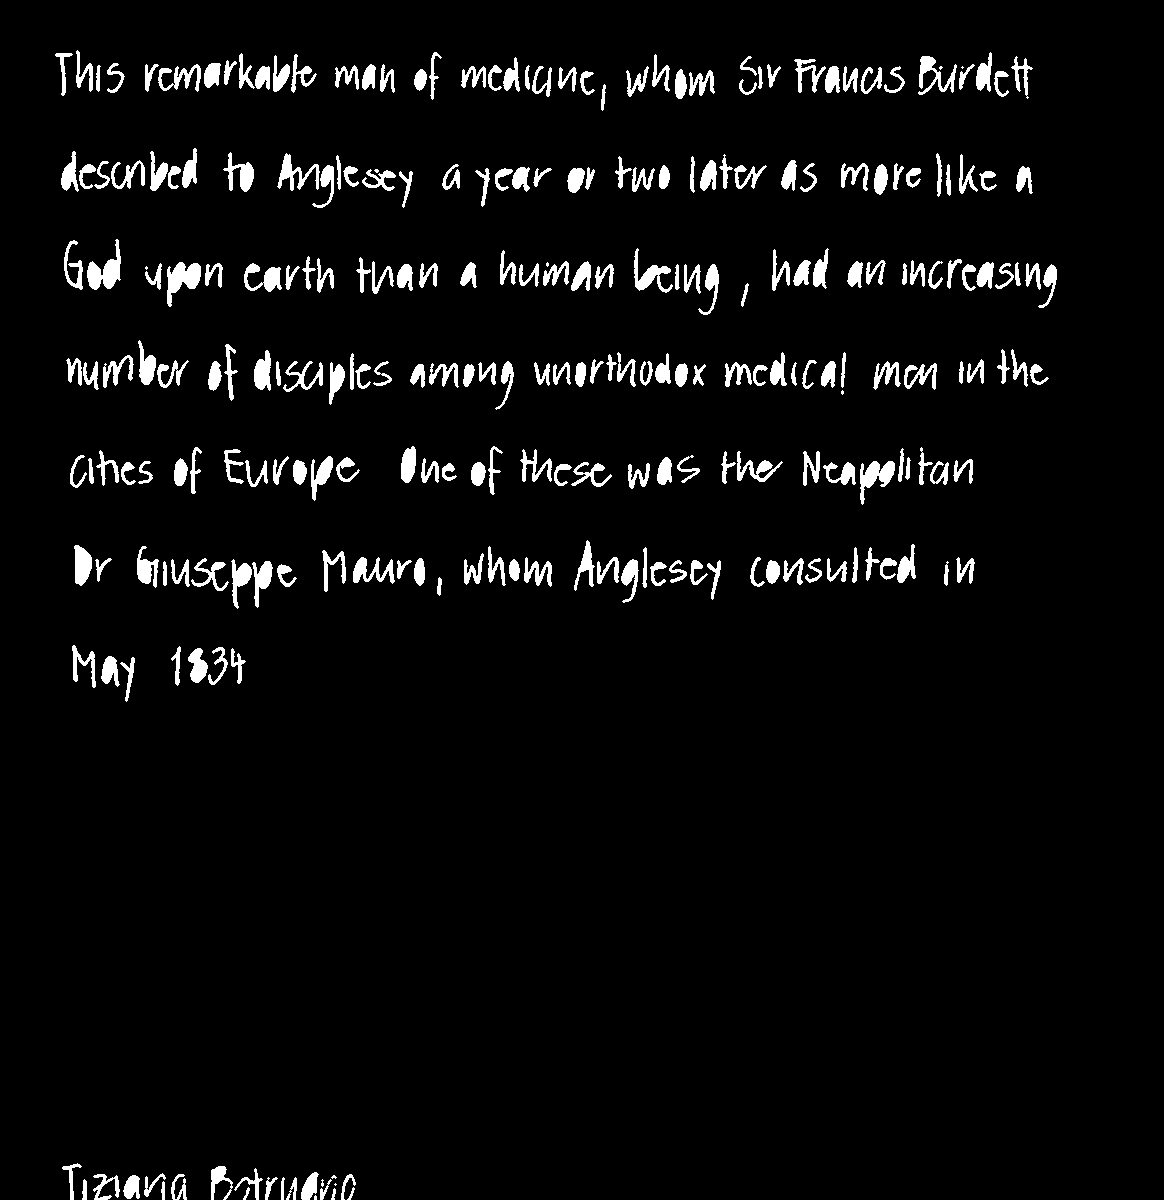 This remarkable man of medicine, whom Sir Francis Burdett
described to Anglesey a year or two later as more like a
God upon earth than a human being, had an increasing
number of disciples among unorthodox medical men in the
cities of Europe One of these was the Neapolitan
Dr Giuseppe Mauro, whom Anglesey consulted in
May 1834
Tiziana